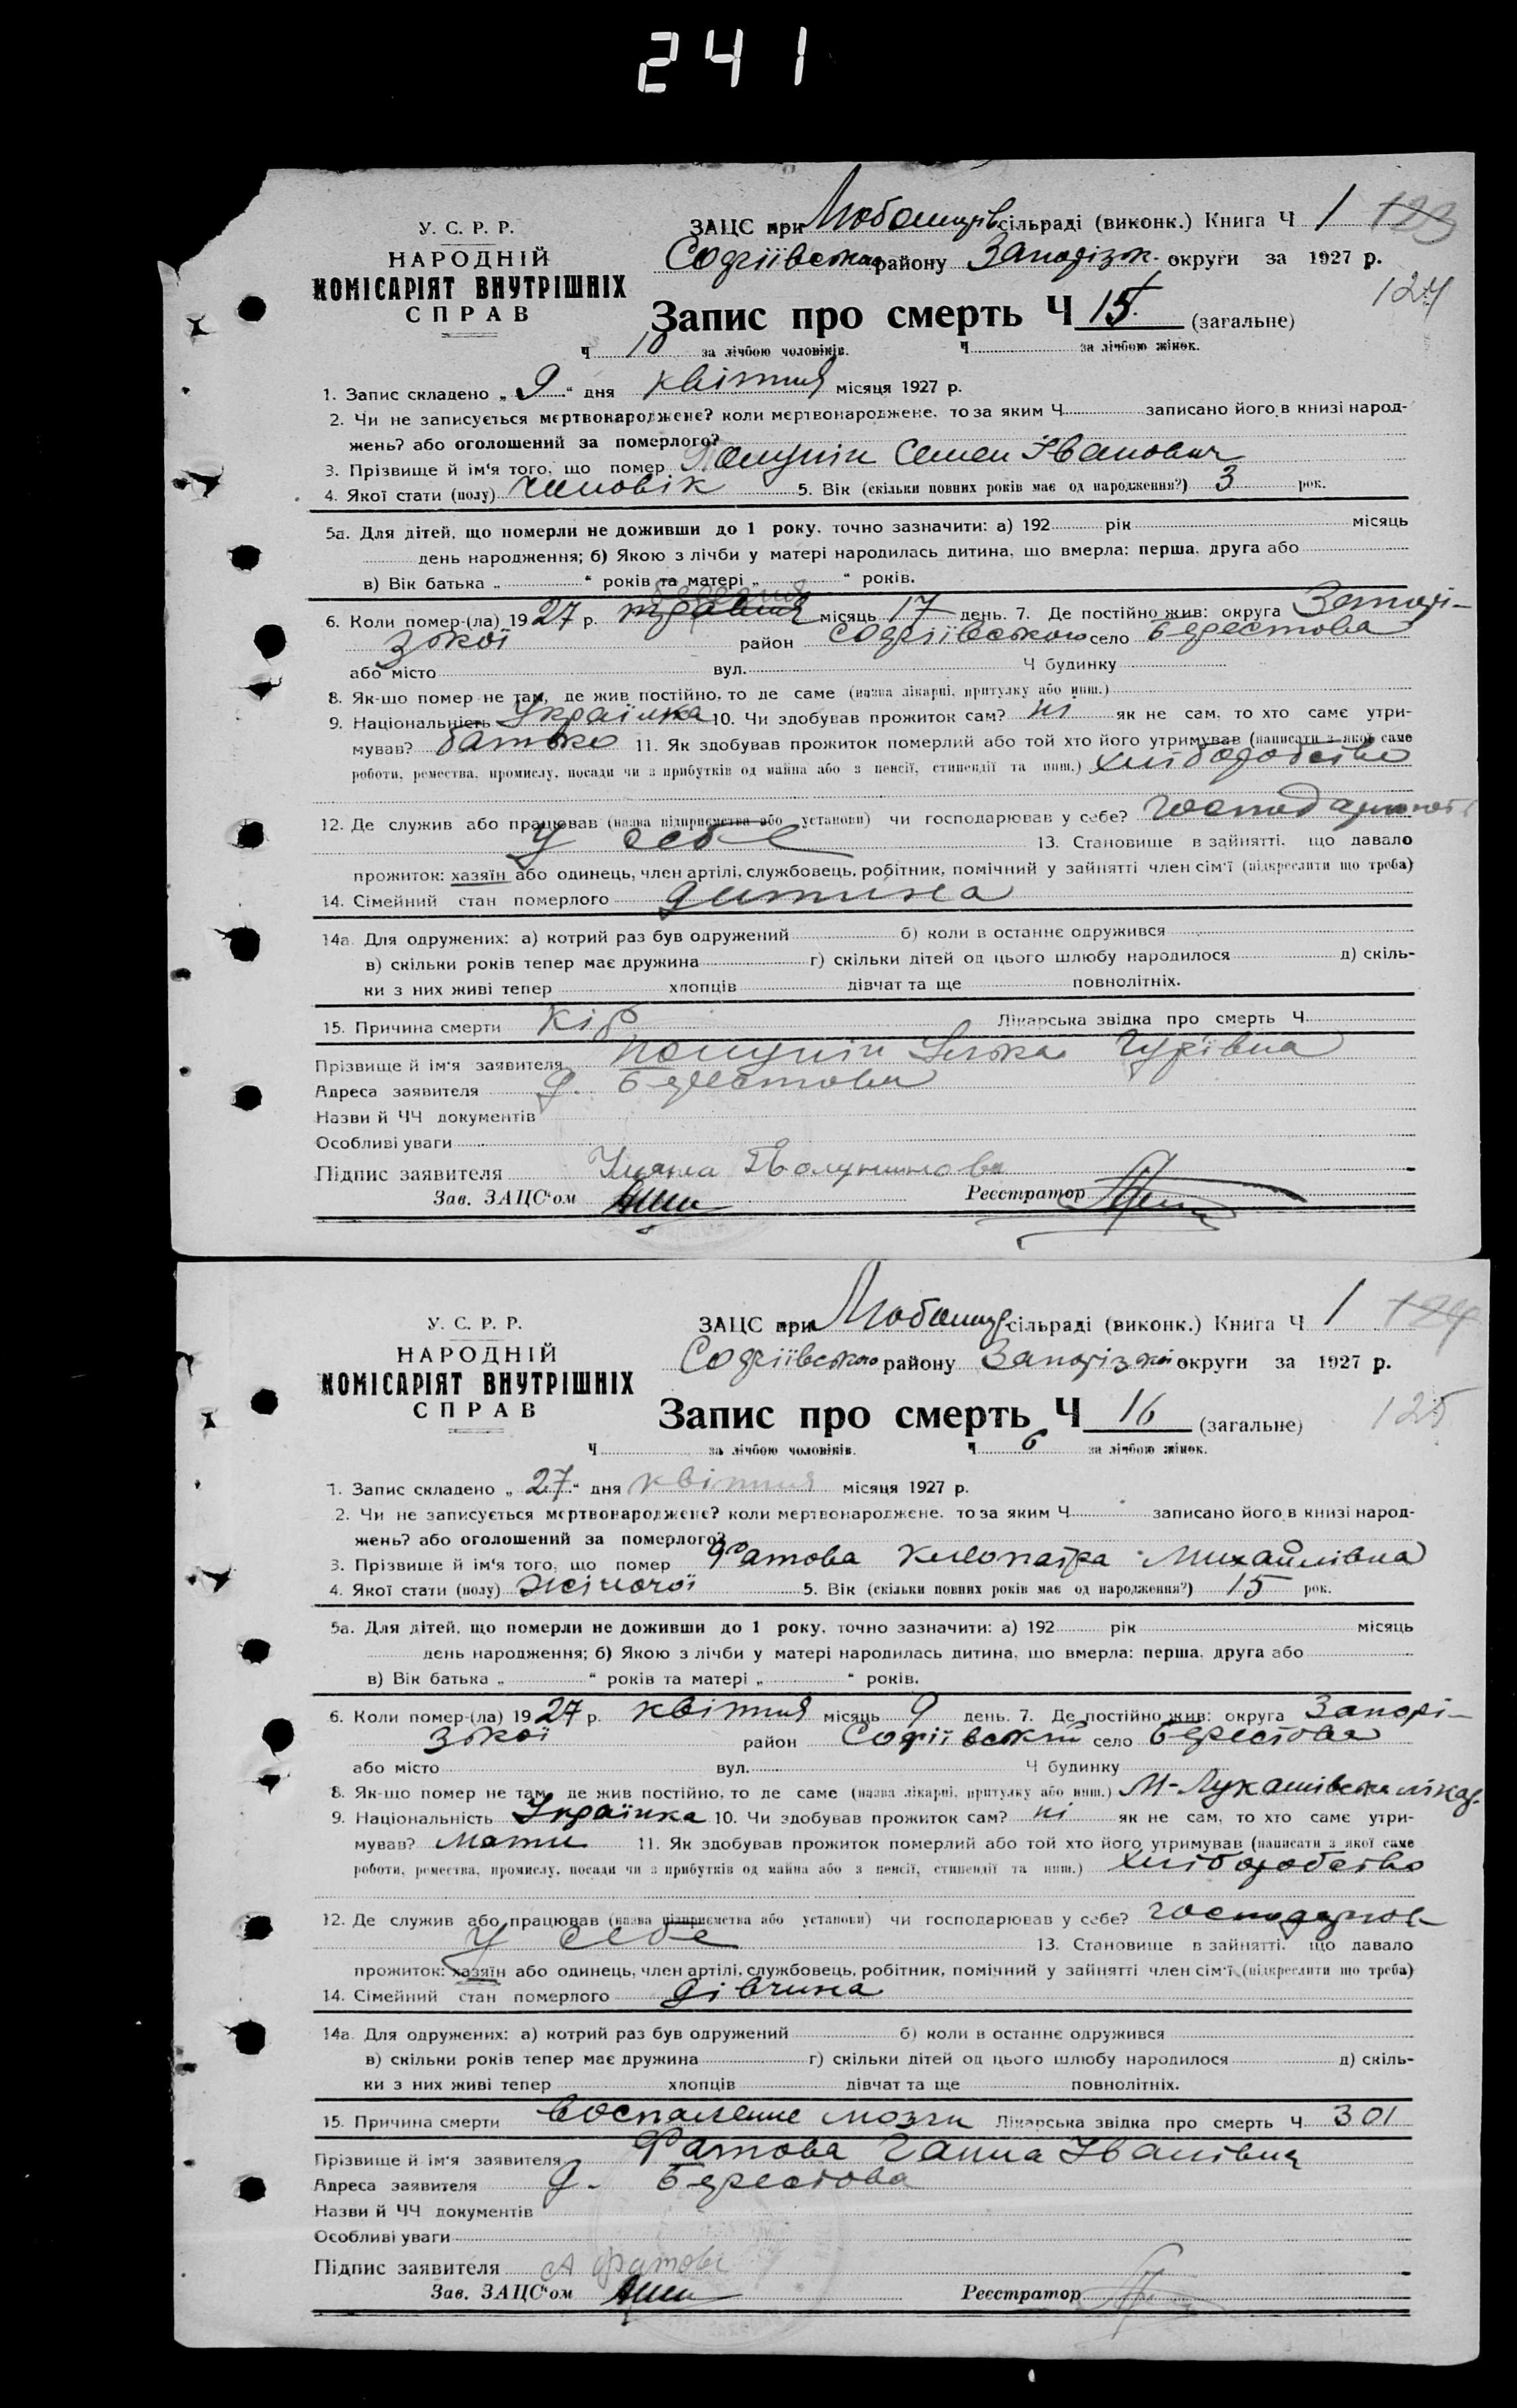 241
У. С. Р. Р.
НАРОДНІЙ
КОМІСАРІЯТ ВНУТРІШНІХ
СПРАВ
ЗАЦС при Любашів сільраді (виконк.) Книга Ч 1 123
Софіївського району Запоріз. округи за 1927 р.
124
Запис про смерть Ч 15 (загальне)
Ч 10 за лічбою чоловіків. Ч за лічбою жінок.
1. Запис складено „ 9 “ дня квітня місяця 1927 р.
2. Чи не записується мертвонароджене? коли мертвонароджене, то за яким Ч записано його в книзі народ-
жень? або оголошений за померлого?
3. Прізвище й ім‘я того, що помер Семен Іванович
4. Якої стати (полу) чиловік 5. Вік (скільки повних років має од народження?) 3 рок.
5а. Для дітей, що померли не доживши до 1 року, точно зазначити: а) 192 рік місяць
день народження; б) Якою з лічби у матері народилась дитина, що вмерла: перша, друга або
в) Вік батька „ “ років та матері „ “ років.
6. Коли помер-(ла) 1927 р. травня місяць 17 день. 7. Де постійно жив: округа Запорі-
зької район Софіївського село Берестова
або місто вул. Ч будинку
8. Як-що помер не там, де жив постійно, то де саме (назва лікарні, притулку або инш.)
9. Національність Українка 10. Чи здобував прожиток сам? ні як не сам, то хто саме утри-
мував? батько 11. Як здобував прожиток померлий або той хто його утримував (написати з якої саме
роботи, ремества, промислу, посади чи з прибутків од майна або з пенсії, стипендії та инш.) хліборобство
12. Де служив або працював (назва підприємства або установи) чи господарював у себе?
у себе 13. Становище в зайнятті, що давало
прожиток: хазяїн або одинець, член артілі, службовець, робітник, помічний у зайнятті член сім‘ї (підкреслити що треба)
14. Сімейний стан померлого дитина
14а. Для одружених: а) котрий раз був одружений б) коли в останнє одружився
в) скільки років тепер має дружина г) скільки дітей од цього шлюбу народилося д) скіль-
ки з них живі тепер хлопців дівчат та ще повнолітніх.
15. Причина смерти кір Лікарська звідка про смерть Ч
Прізвище й ім‘я заявителя Гурівна
Адреса заявителя д. Берестова
Назви й ЧЧ документів
Особливі уваги
Підпис заявителя Уляна Полунинова
Зав. ЗАЦС‘ом Реєстратор
У. С. Р. Р.
НАРОДНІЙ
КОМІСАРІЯТ ВНУТРІШНІХ
СПРАВ
ЗАЦС при Любашів сільраді (виконк.) Книга Ч 1 124
Софіївського району Запорізької округи за 1927 р.
125
Запис про смерть Ч 16 (загальне)
Ч за лічбою чоловіків. Ч 6 за лічбою жінок.
1. Запис складено „ 27 “ дня квітня місяця 1927 р.
2. Чи не записується мертвонароджене? коли мертвонароджене, то за яким Ч записано його в книзі народ-
жень? або оголошений за померлого?
3. Прізвище й ім‘я того, що помер Фатова Клеопатра Михайлівна
4. Якої стати (полу) жіночої 5. Вік (скільки повних років має од народження?) 15 рок.
5а. Для дітей, що померли не доживши до 1 року, точно зазначити: а) 192 рік місяць
день народження; б) Якою з лічби у матері народилась дитина, що вмерла: перша, друга або
в) Вік батька „ “ років та матері „ “ років.
6. Коли помер-(ла) 1927 р. квітня місяць 9 день. 7. Де постійно жив: округа Запорі-
зької район Софіївський село Берестова
або місто вул. Ч будинку
8. Як-що помер не там, де жив постійно, то де саме (назва лікарні, притулку або инш.) М-Лукашівська лікар.
9. Національність Українка 10. Чи здобував прожиток сам? ні як не сам, то хто саме утри-
мував? мати 11. Як здобував прожиток померлий або той хто його утримував (написати з якої саме
роботи, ремества, промислу, посади чи з прибутків од майна або з пенсії, стипендії та инш.) хліборобство
12. Де служив або працював (назва підприємства або установи) чи господарював у себе?
у себе 13. Становище в зайнятті, що давало
прожиток: хазяїн або одинець, член артілі, службовець, робітник, помічний у зайнятті член сім‘ї (підкреслити що треба)
14. Сімейний стан померлого дівчина
14а. Для одружених: а) котрий раз був одружений б) коли в останнє одружився
в) скільки років тепер має дружина г) скільки дітей од цього шлюбу народилося д) скіль-
ки з них живі тепер хлопців дівчат та ще повнолітніх.
15. Причина смерти воспаление мозги Лікарська звідка про смерть Ч 301
Прізвище й ім‘я заявителя Фатова Ганна Іванівна
Адреса заявителя д. Берестова
Назви й ЧЧ документів
Особливі уваги
Підпис заявителя А Фатова
Зав. ЗАЦС‘ом Реєстратор